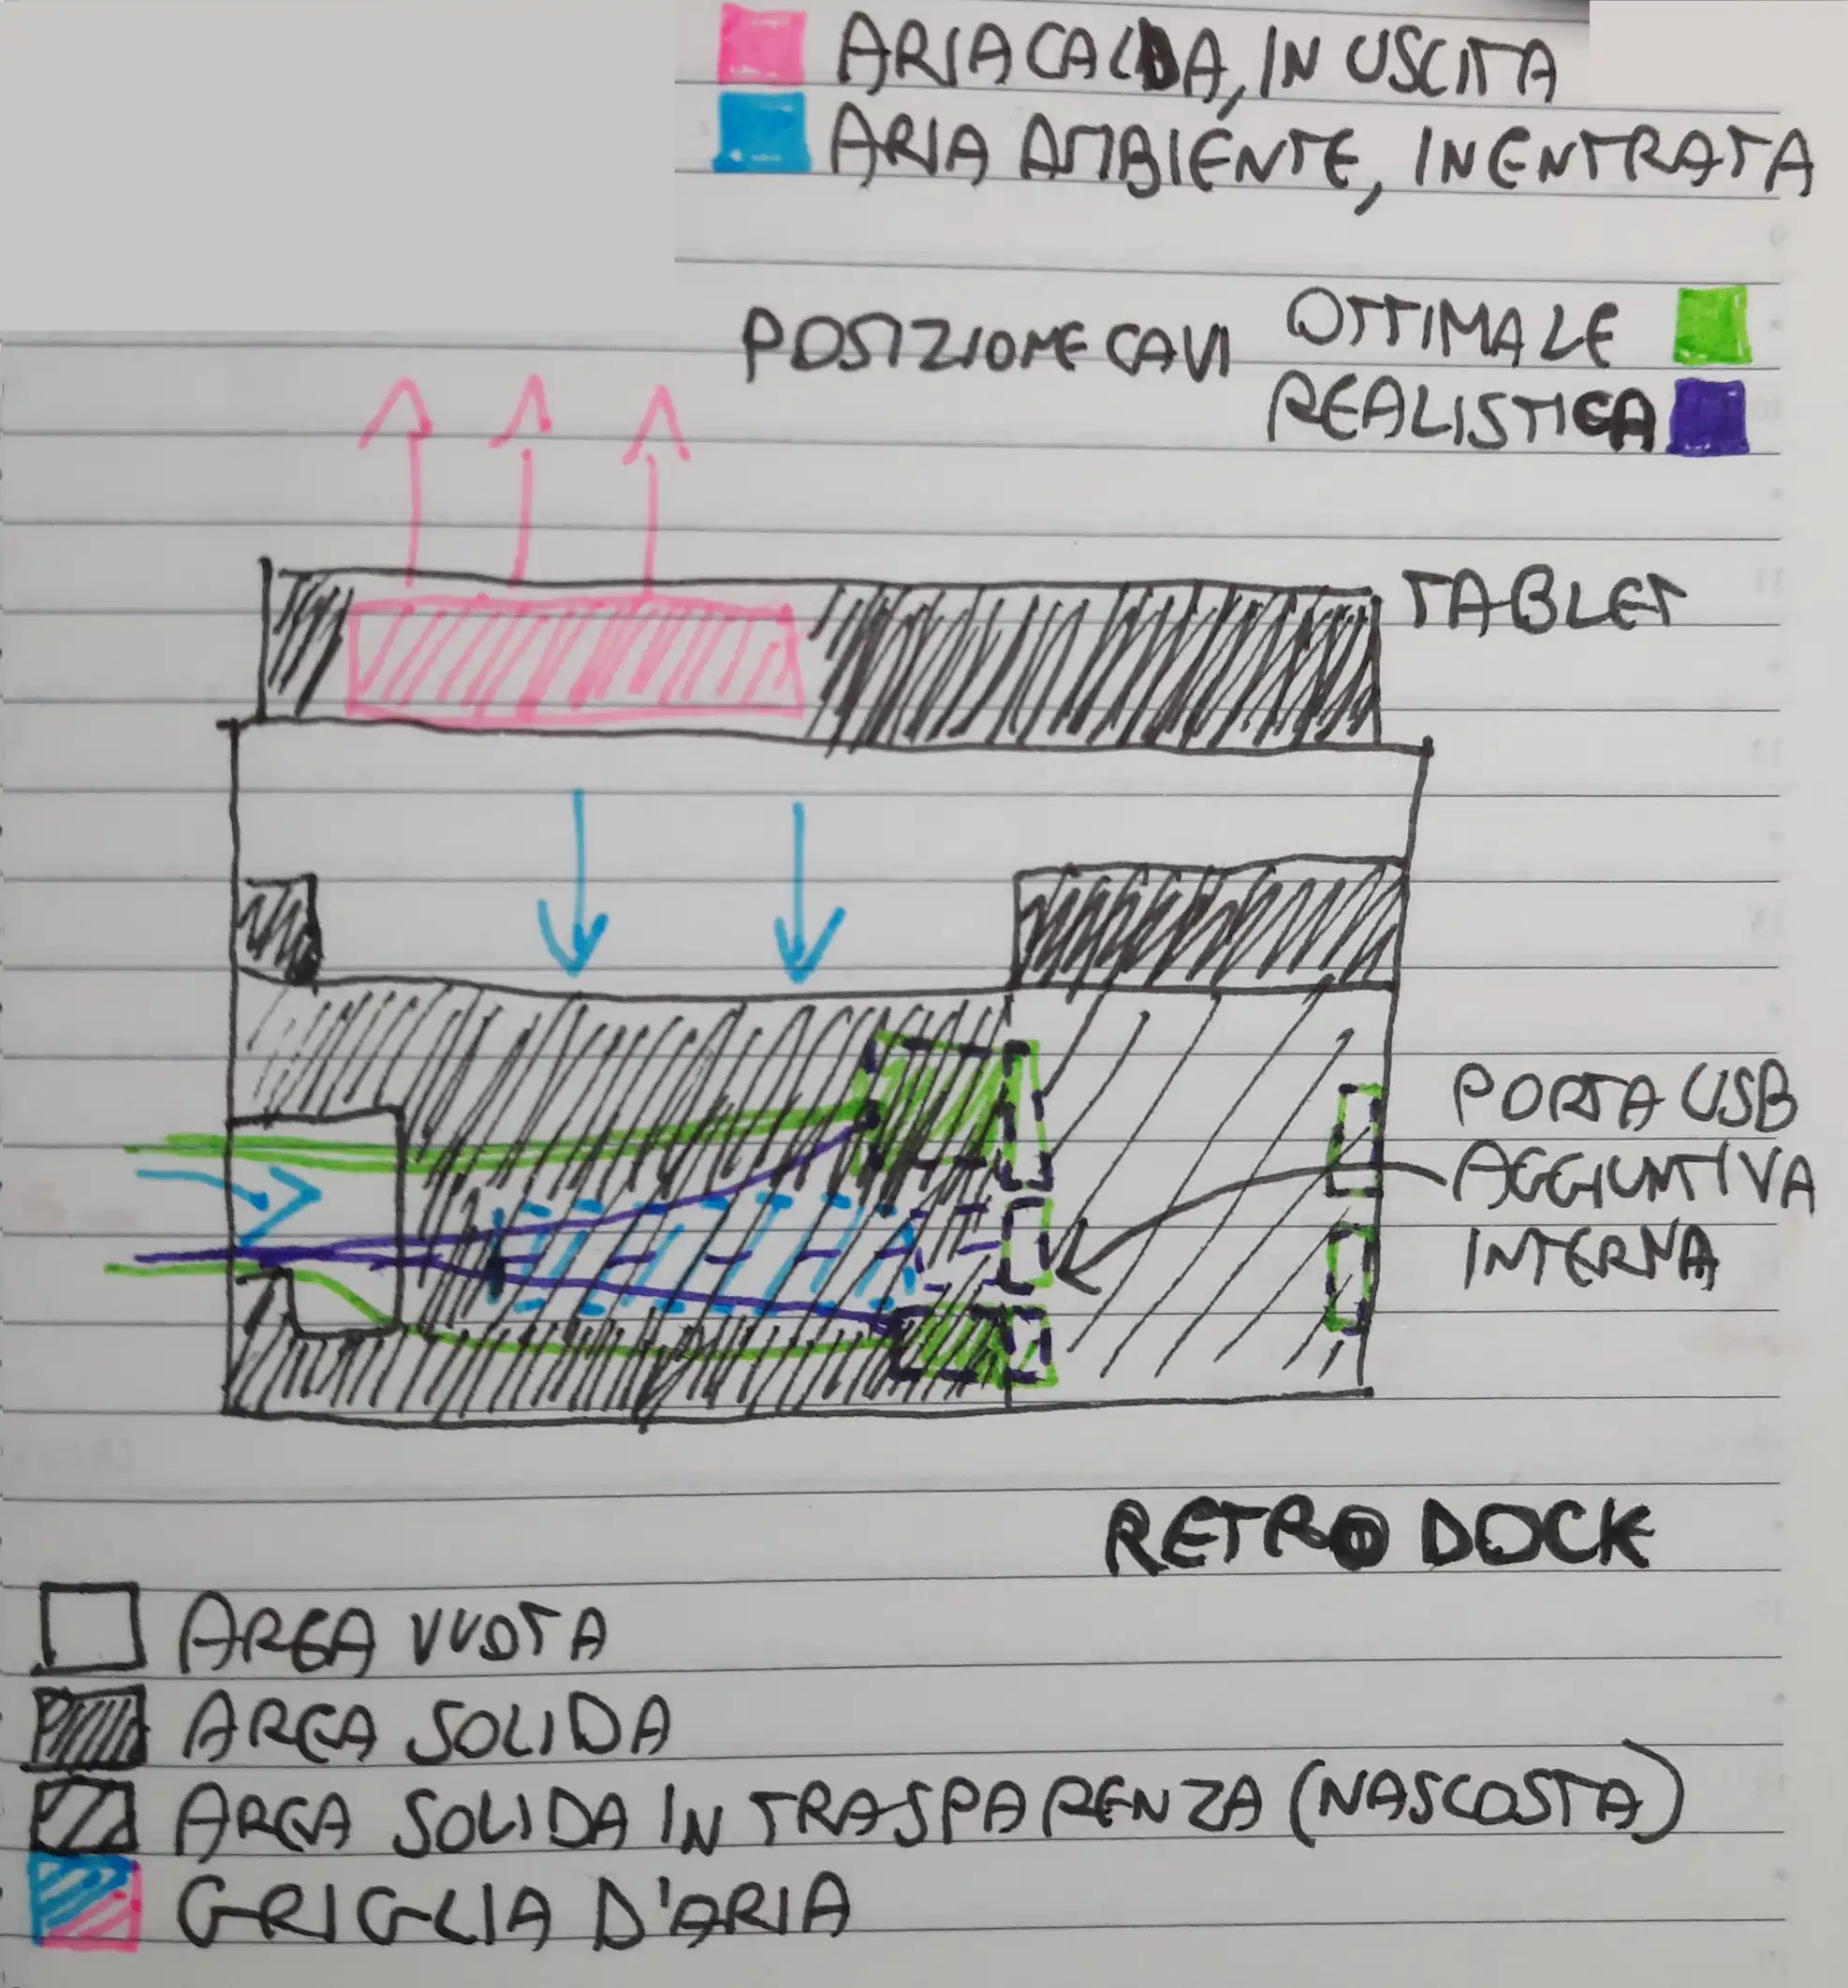 ARIA CALDA, IN USCITA
ARIA AMBIENTE, IN ENTRATA
POSIZIONE CAVI OTTIMALE
REALISTICA
TABLET
PORTA USB
AGGIUNTIVA
INTERNA
RETRO DOCK
AREA VUOTA
AREA SOLIDA
AREA SOLIDA IN TRASPARENZA (NASCOSTA)
GRIGLIA D'ARIA